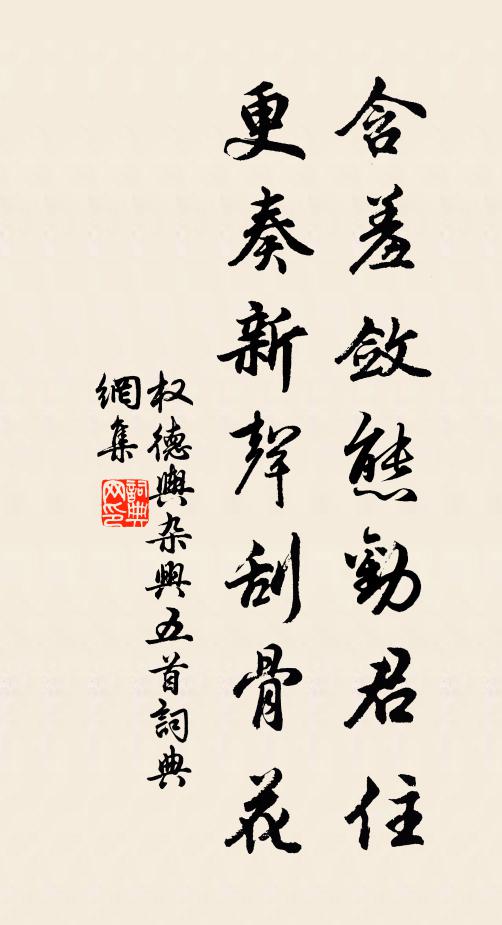 含羞斂態勸君住
更奏新聲刮骨花
权德輿杂興五首詞典
網集
詞典
网印